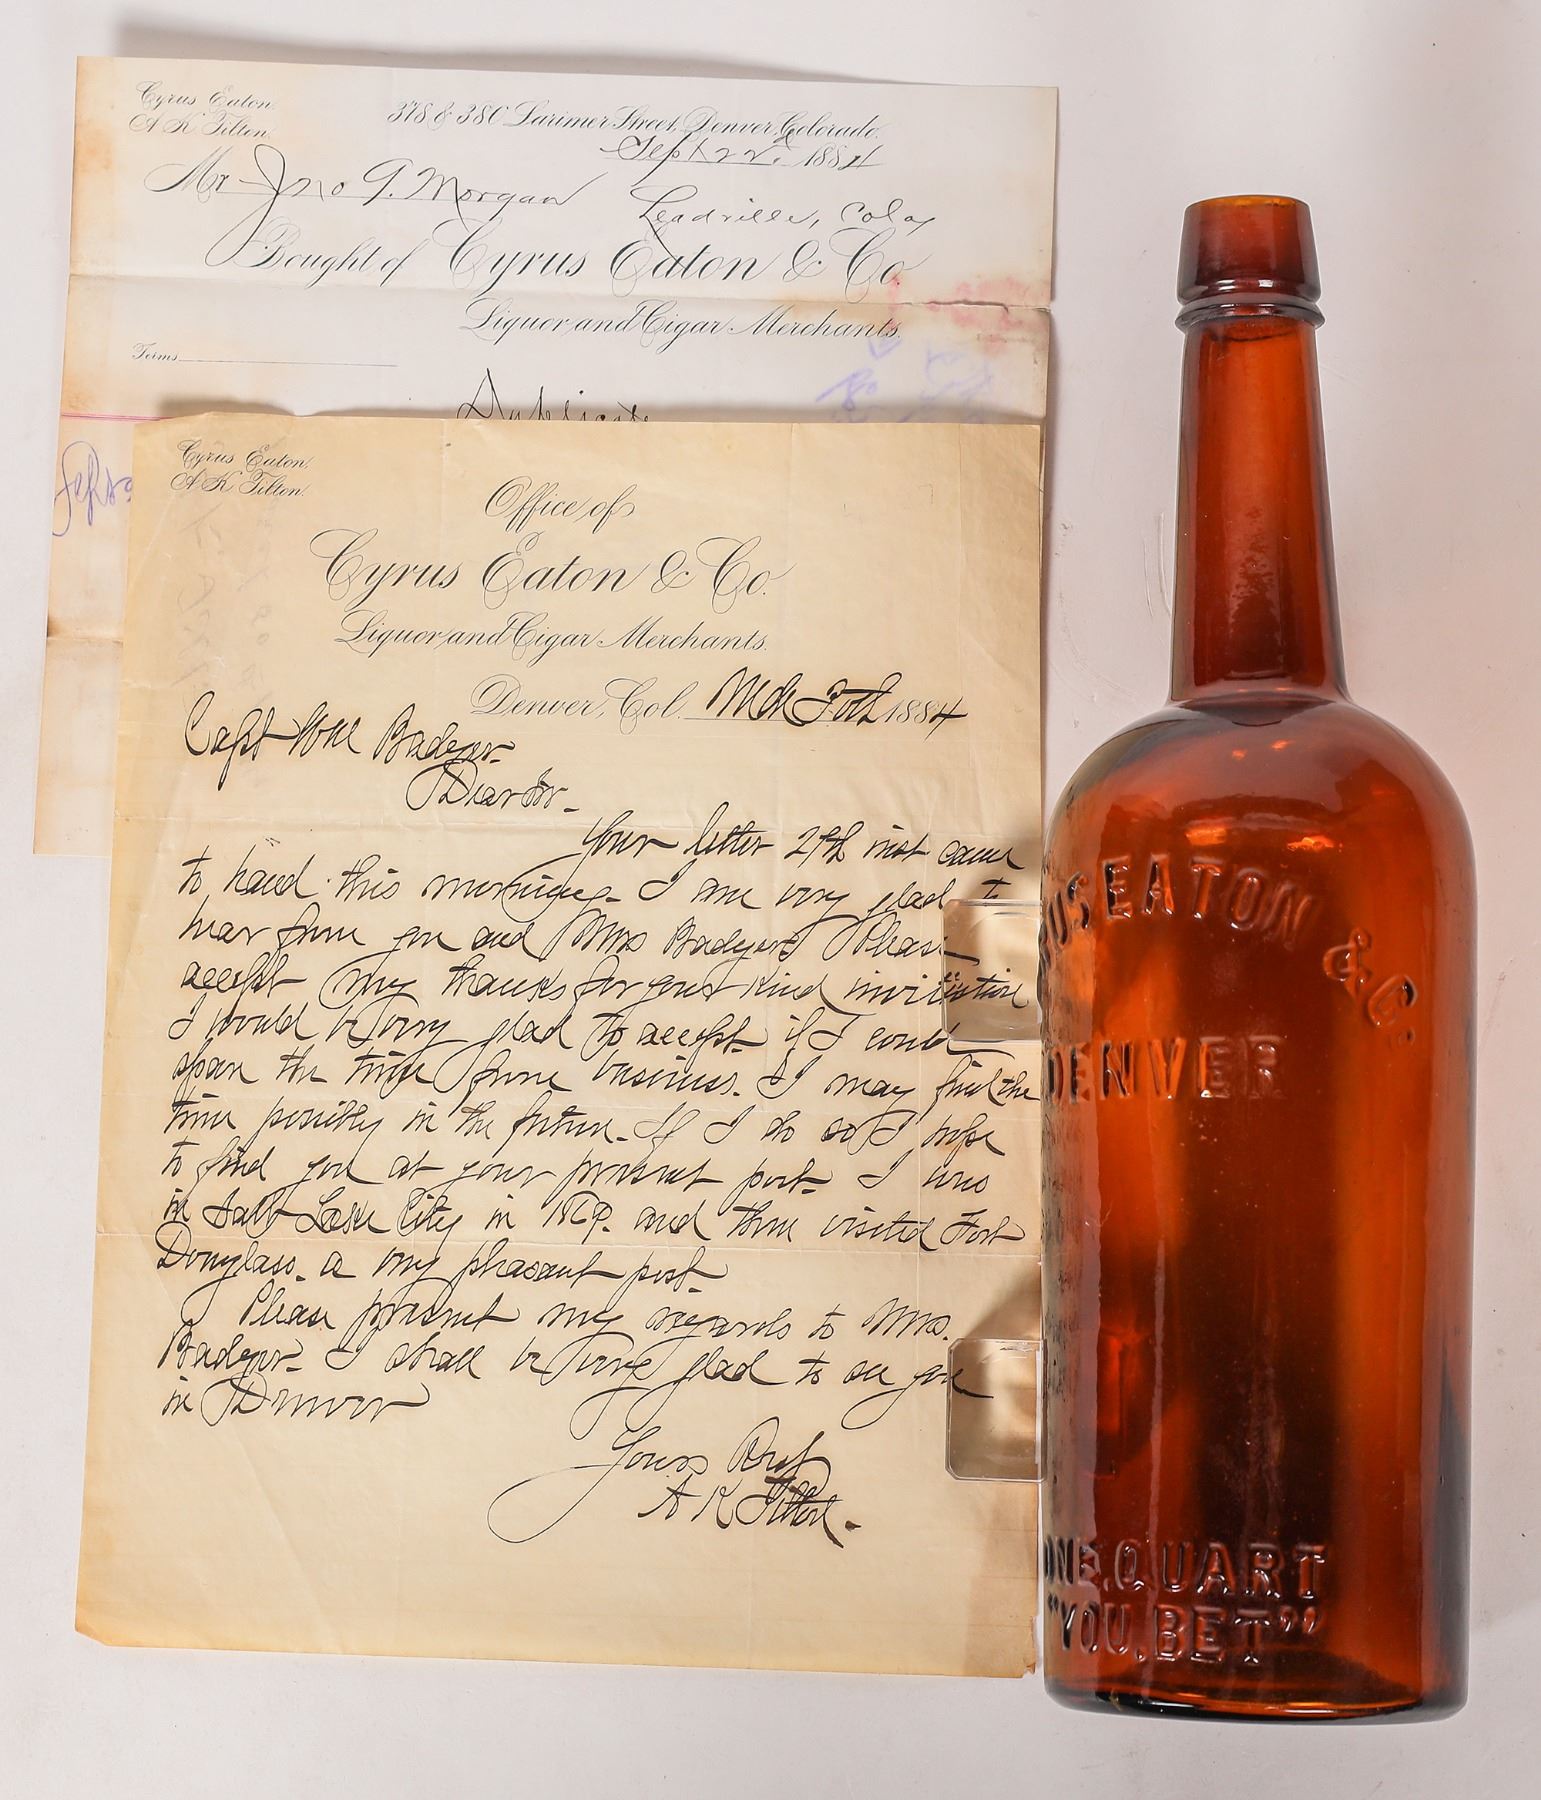 Cyrus Eaton.
A K Tilton.
378 & 380 Larimer Street, Denver, Colorado.
Sept 22d 1884
Mr Jno G. Morgan
Leadville, Colo
Bought of Cyrus Eaton & Co.
Liquor and Cigar Merchants.
Terms
Duplicate
Cyrus Eaton.
A K Tilton.
Office of
Cyrus Eaton & Co.
Liquor and Cigar Merchants.
Denver, Col. Mch 30th 1884
Capt Wm Badger
Dear Sir.
Your letter 27th inst came
to hand this morning. I am very glad to
hear from you and Mrs Badger Please
accept my thanks for your kind invitation
I would be very glad to accept if I could
spare the time from business. I may find the
time possibly in the future. If I do so I hope
to find you at your present post. I was
in Salt Lake City in 1879. and then visited Fort
Douglass. a very pleasant post.
Please present my regards to Mrs.
Badger. I shall be very glad to see you
in Denver
Yours Resp
A K Tilton.
US EATON & CO.
DENVER
ONE.QUART
"YOU.BET"